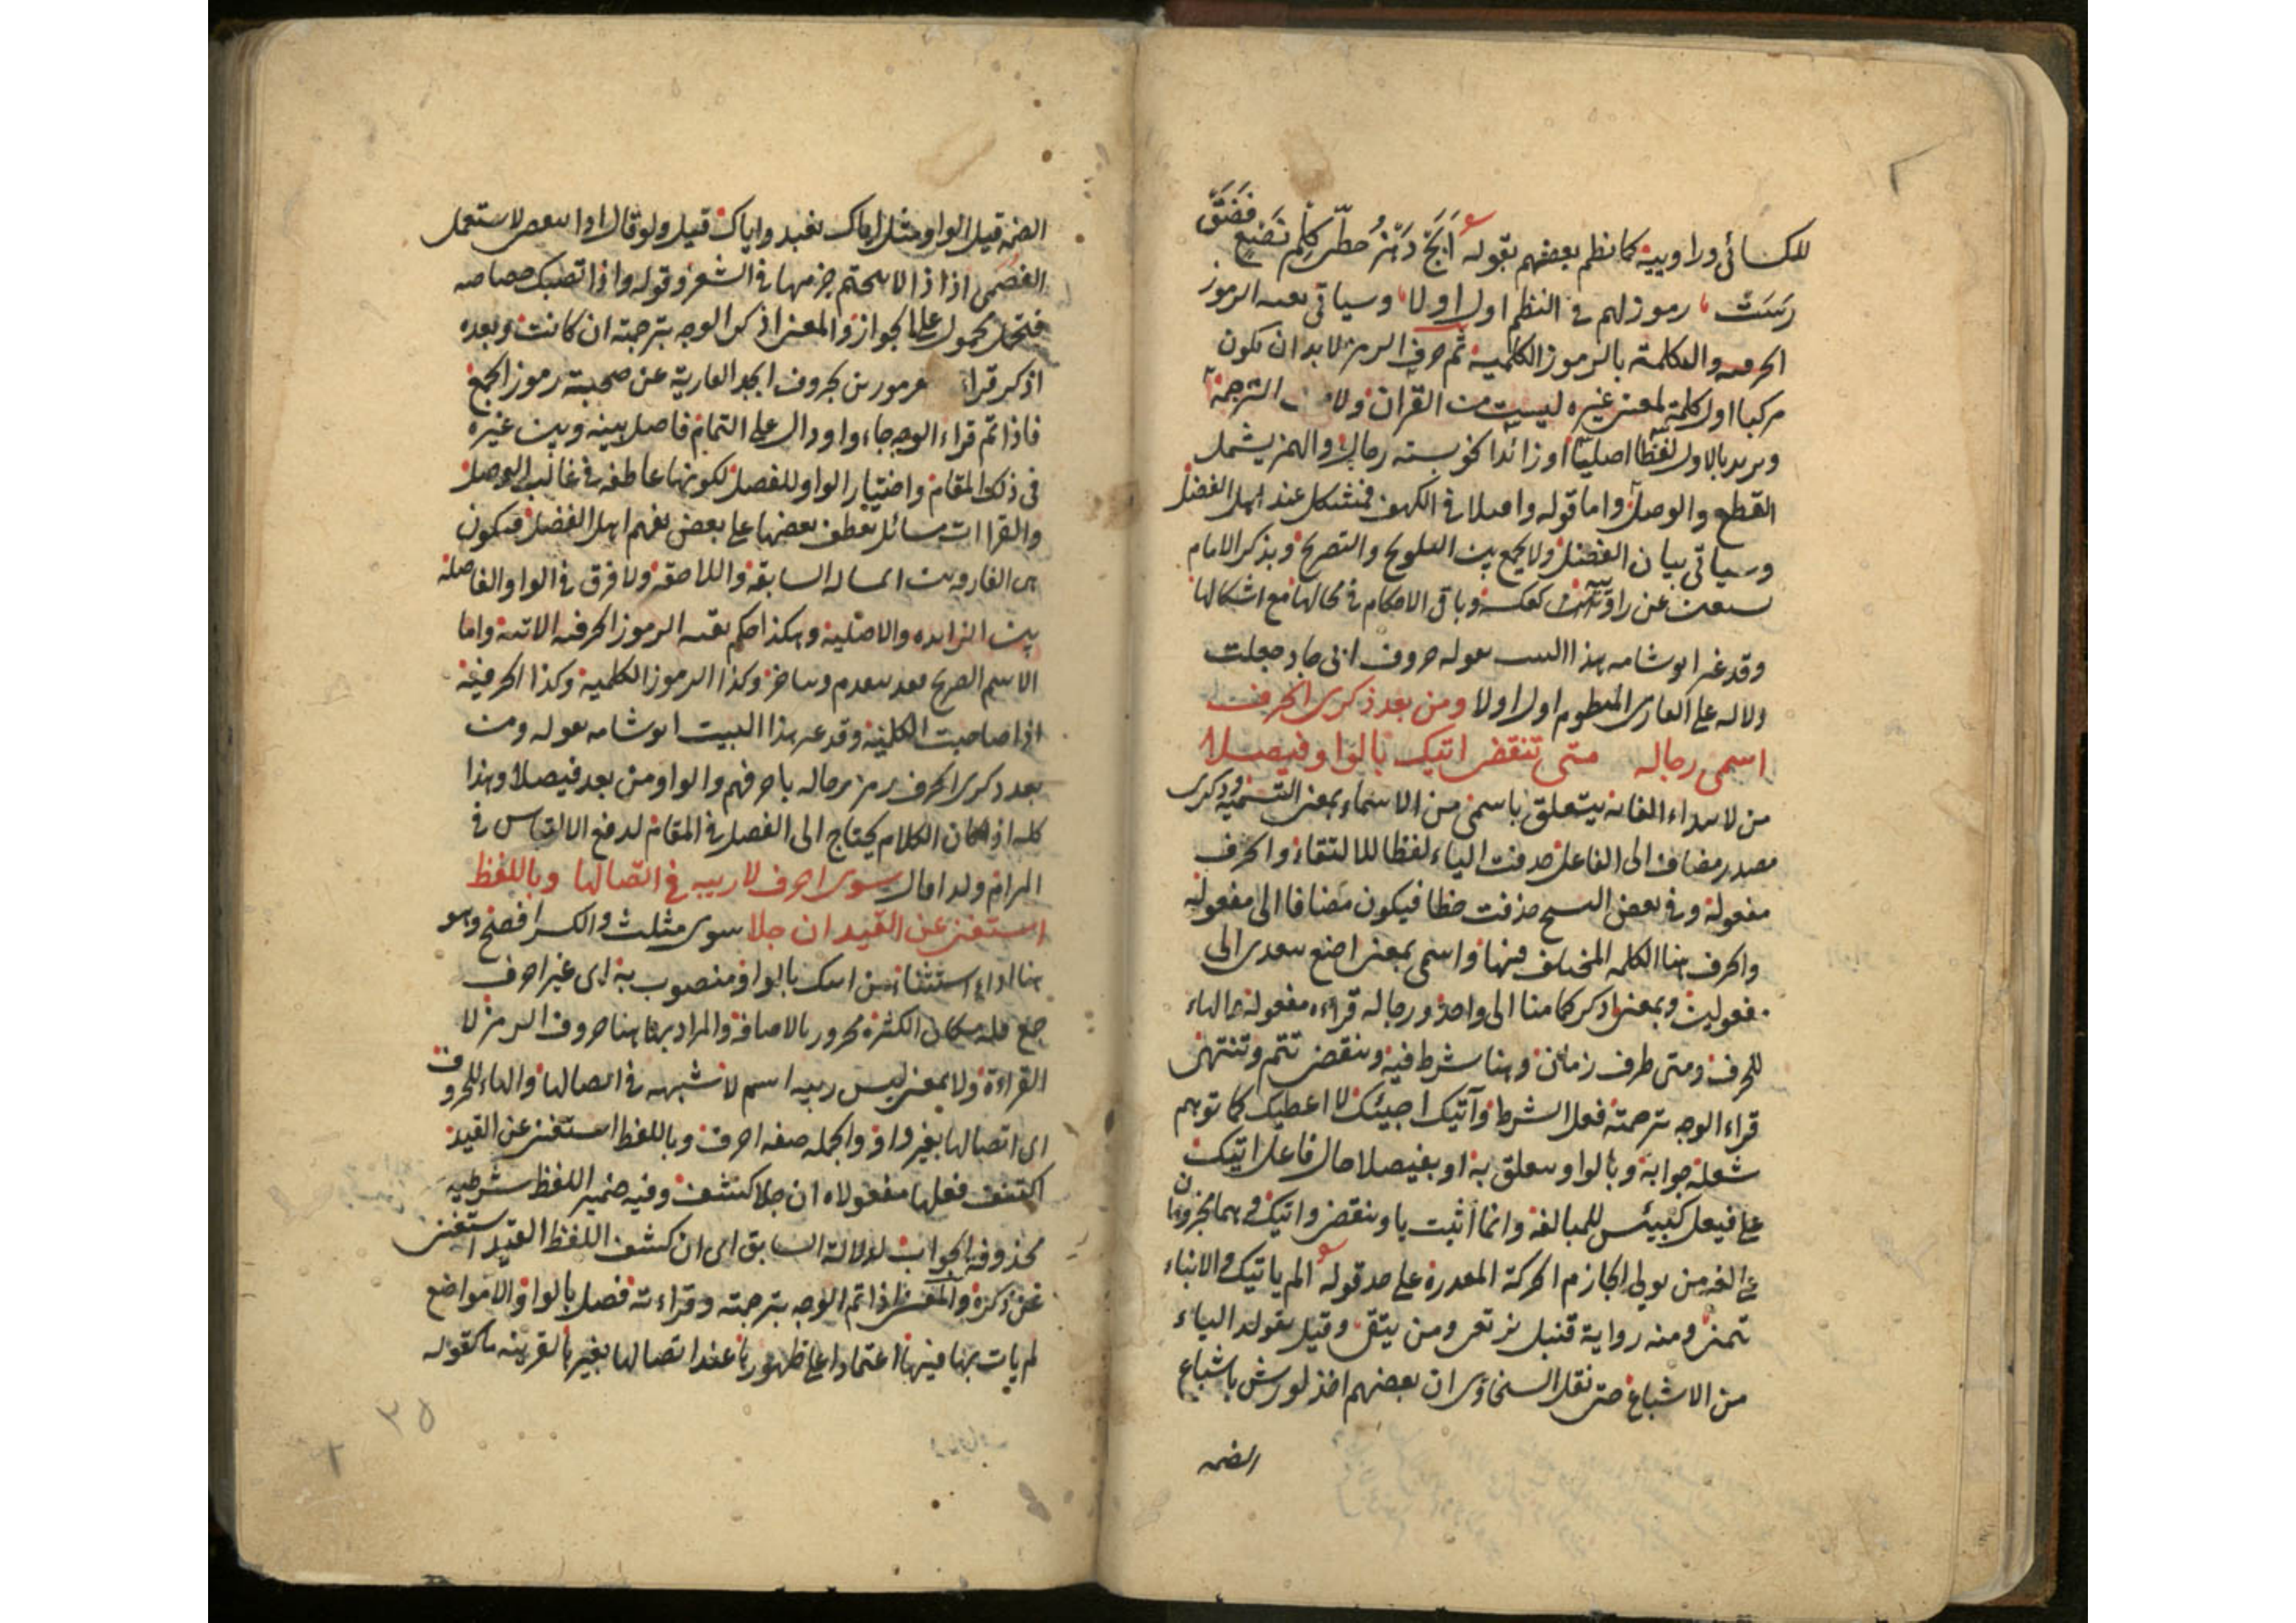 للكسائى وراوييه كما نظم بعضهم بقوله أبج دهز حطى كلم نصع فضق
رست رموز لهم فى النظم اولا اولا وسياتى بعيه الرموز
الحرفيه والكلمة بالرموز الكلميه ثم حرف الرمز لا بد ان يكون
مركبا اول كلمة لمعنى غيره ليست من القران ولا من الترجمة
ويريد بالاول لفظا اصليا او زائدا نحو بسته رجال والهمز يشمل
القطع والوصل واما قوله واصلا فى الكهف فمشكل عند اهل الفضل
وسياتى بيان الفضل ولا يجمع بين التلويح والتصريح ويذكر الامام
عن راويين كعكسه وباقى الاحكام فى محالها مع اشكالها
وقد غير ابو شامه هذا البيت بقوله حروف ابى جاد جعلت
دلاله على القارى المنظوم اول اولا ومن بعد ذكرى الحرف
اسمى رجاله متى تنقضى اتيك بالواو فيصلا
من لابتداء الغايه يتعلق باسمى من الاسماء بمعنى التسميه وذكرى
مصدر مضاف الى الفاعل حذفت الياء لفظا للالتقاء والحرف
مفعوله وفى بعض النسخ حذفت خطا فيكون مضافا الى مفعوله
والحرف هنا الكلمه المختلف فيها واسمى بمعنى اضع يتعدى الى
مفعولين وبمعنى اذكر كما هنا الى واحد ورجاله قراءه مفعوله والهاء
للحرف ومتى ظرف زمان وهنا شرط فيه وتنقضى تتم وتنتهى
قراء الوجه بترجمته فعل الشرط وآتيك اجيئك لا اعطيك كما توهم
شعله جوابه وبالواو يتعلق به او بفيصلا حال فاعل اتيك
على فيعل كبيئس للمبالغه وانما أثبت يا وتنقضى واتيك وهما مجزومان
على لغه من يولى الجازم الحركة المقدره على حد قوله الم ياتيك والانباء
تنمى ومنه رواية قنبل نرتعى ومن يتقى وقيل تولد الياء
من الاشباع حتى نقل السخاوى ان بعضهم اخذ لورش باشباع
الضمه
الضمه قبل الواو مثل اياك نعبد واياك قيل ولو قال اذا لاستعمل
الفصحى اذ اذا لا يتحتم جزمها فى الشعر وقوله واذا تصبك خصاصه
فتحمل محمول على الجواز والمعنى اذكر الوجه بترجمته ان كانت وبعده
اذكر قراءه مرموزين بحروف ابجد العارية عن صحبة رموز الجمع
فاذا تم قراء الوجه جاء واو دال على التمام فاصل بينه وبين غيره
فى ذلك المقام واختيار الواو للفصل لكونها عاطفه فى غالب الوصل
والقراات مسائل يعطف بعضها على بعض يفهم اهل الفضل فيكون
هى الفارقه بين المساله السابقه واللاحقه ولا فرق فى الواو الفاصله
بين الزايده والاصليه وهكذا حكم بقيه الرموز الحرفيه الاتيه واما
الاسم الصريح فقد يتقدم ويتاخر وكذا الرموز الكلميه وكذا الحرفيه
اذا صاحبت الكلميه وقد غير هذا البيت ابو شامه بقوله ومن
بعد ذكرى الحرف رمز رجاله باحرفهم والواو من بعد فيصلا وهذا
كله اذا كان الكلام يحتاج الى الفصل فى المقام لدفع الالتباس فى
المرام ولذا قال سوى احرف لا ريبه فى اتصالها وباللفظ
استغنى عن القيد ان جلا سوى مثلث والكسر افصح وهو
هنا اداة استثناء من اتيك بالواو منصوب به اى غير احرف
جمع قله مكان الكثره مجرور بالاضافه والمراد بها هنا حروف الرمز لا
القراءة ولا بمعنى ليس ريبه اسم لا شبهه فى اتصالها والهاء للحروف
اى اتصالها بغير واو والجمله صفه احرف وباللفظ استغنى عن القيد
اكتنف فعلها مفعولاه ان جلا كشف وفيه ضمير اللفظ شرطيه
محذوفه الجواب لدلالة السابق اى ان كشف اللفظ القيد استغنى
عن ذكره والمعنى اذا تم الوجه بترجمته وقراءته فصل بالواو الا مواضع
لم يات بها فيها اعتمادا على ظهورها عند اتصالها بغيرها لقرينه ما كقوله
٣٥